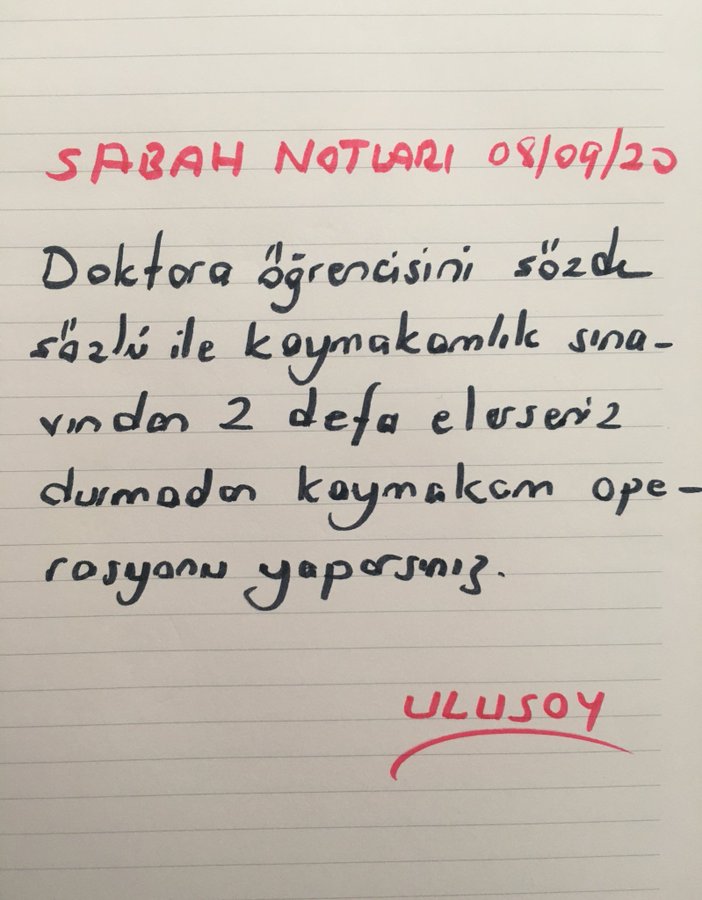 SABAH NOTLARI 08/09/20
Doktora öğrencisini sözde
sözlü ile kaymakamlık sına-
vından 2 defa elerseniz
durmadan kaymakam ope-
rasyonu yaparsınız.
ULUSOY